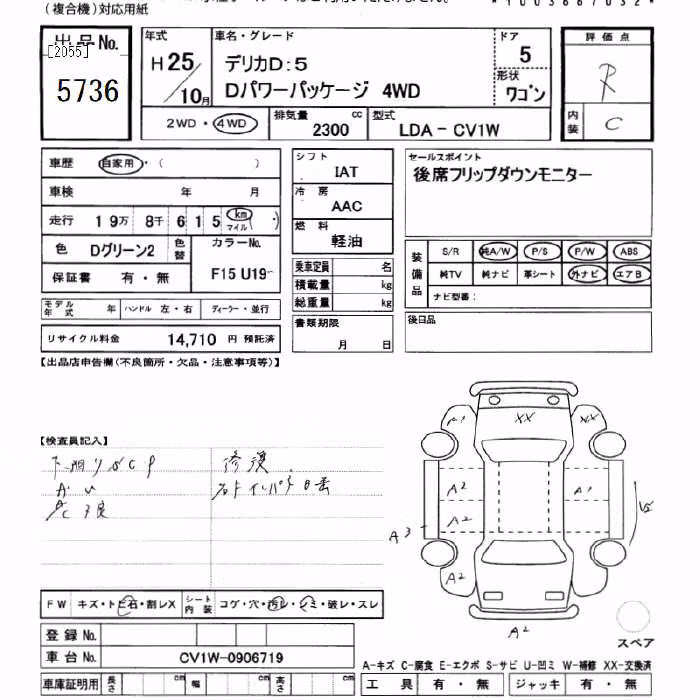 (複合機)対応用紙
*1003667032*
出品No.
[2055]
5736
年式
H25/10月
車名・グレード
デリカD:5
Dパワーパッケージ 4WD
ドア
5
形状
ワゴン
評価点
R
内装
C
2WD・4WD
排気量
2300 cc
型式
LDA - CV1W
車歴 自家用・( )
車検 年 月
走行 19万 8千 6 1 5 km マイル ( )
色 Dグリーン2 色替
カラーNo.
F15 U19
保証書 有・無
モデル年式 年 ハンドル 左・右 ディーラー・並行
リサイクル料金 14,710 円 預託済
シフト
IAT
冷房
AAC
燃料
軽油
乗車定員 名
積載量 kg
総重量 kg
書類期限
月 日
セールスポイント
後席フリップダウンモニター
装備品
S/R 純A/W P/S P/W ABS
純TV 純ナビ 革シート 外ナビ エアB
ナビ型番:
後日品
【出品店申告欄(不良箇所・欠品・注意事項等)】
【検査員記入】
修復
A1 XX XX
A2 A1
A2
A3
A2
A2
スペア
FW キズ・トビ石・割レX シート内装 コゲ・穴・汚レ・シミ・破レ・スレ
登録No.
車台No. CV1W-0906719
車庫証明用 長さ cm 幅 cm 高さ cm
A-キズ C-腐食 E-エクボ S-サビ U-凹ミ W-補修 XX-交換済
工具 有・無 ジャッキ 有・無